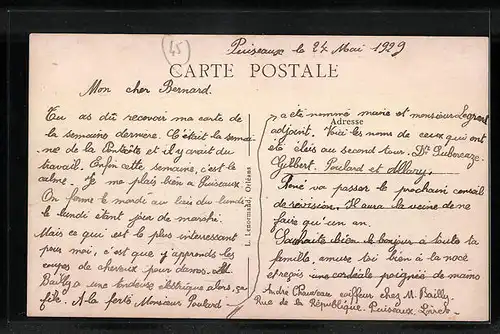 45
Puiseaux le 24 Mai 1929
CARTE POSTALE
Mon cher Bernard.
Tu as dû recevoir ma carte de
la semaine dernière. C'était la semai-
ne de la Pentecôte et il y avait du
travail. Enfin cette semaine, c'est le
calme. Je me plais bien à Puiseaux.
On ferme le mardi au lieu du lundi
le lundi étant jour de marché.
Mais ce qui est le plus intéressant
pour moi, c'est que j'apprends les
coupes de cheveux pour dames. M.
Bailly a une tondeuse électrique alors, ça
file. A la ferté Monsieur Poulard
L. Lenormand, Orléans
a été nommé maire et monsieur Legrand
Adresse
adjoint. Voici les noms de ceux qui ont
été élus au second tour. Dr
Gilbert. Poulard et Allary.
René va passer le prochain conseil
de révision. Il aura la veine de ne
faire qu'un an.
Souhaite bien le bonjour à toute ta
famille, amuse toi bien à la noce
et reçois une cordiale poignée de mains
André Chauveau coiffeur chez M. Bailly
Rue de la République. Puiseaux. Loiret